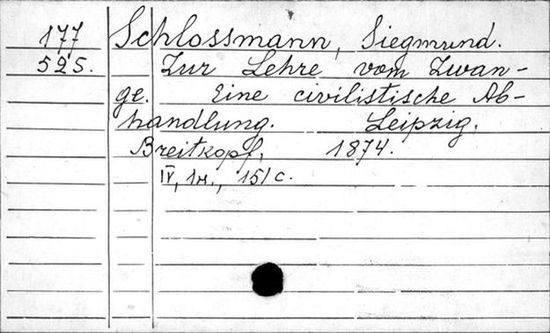 177 Schlossmann, Siegmund.
525. Zur Lehre vom Zwan-
ge. Eine civilistische Ab-
handlung. Leipzig.
Breitkopf, 1874.
IV, 1н., 151 c.